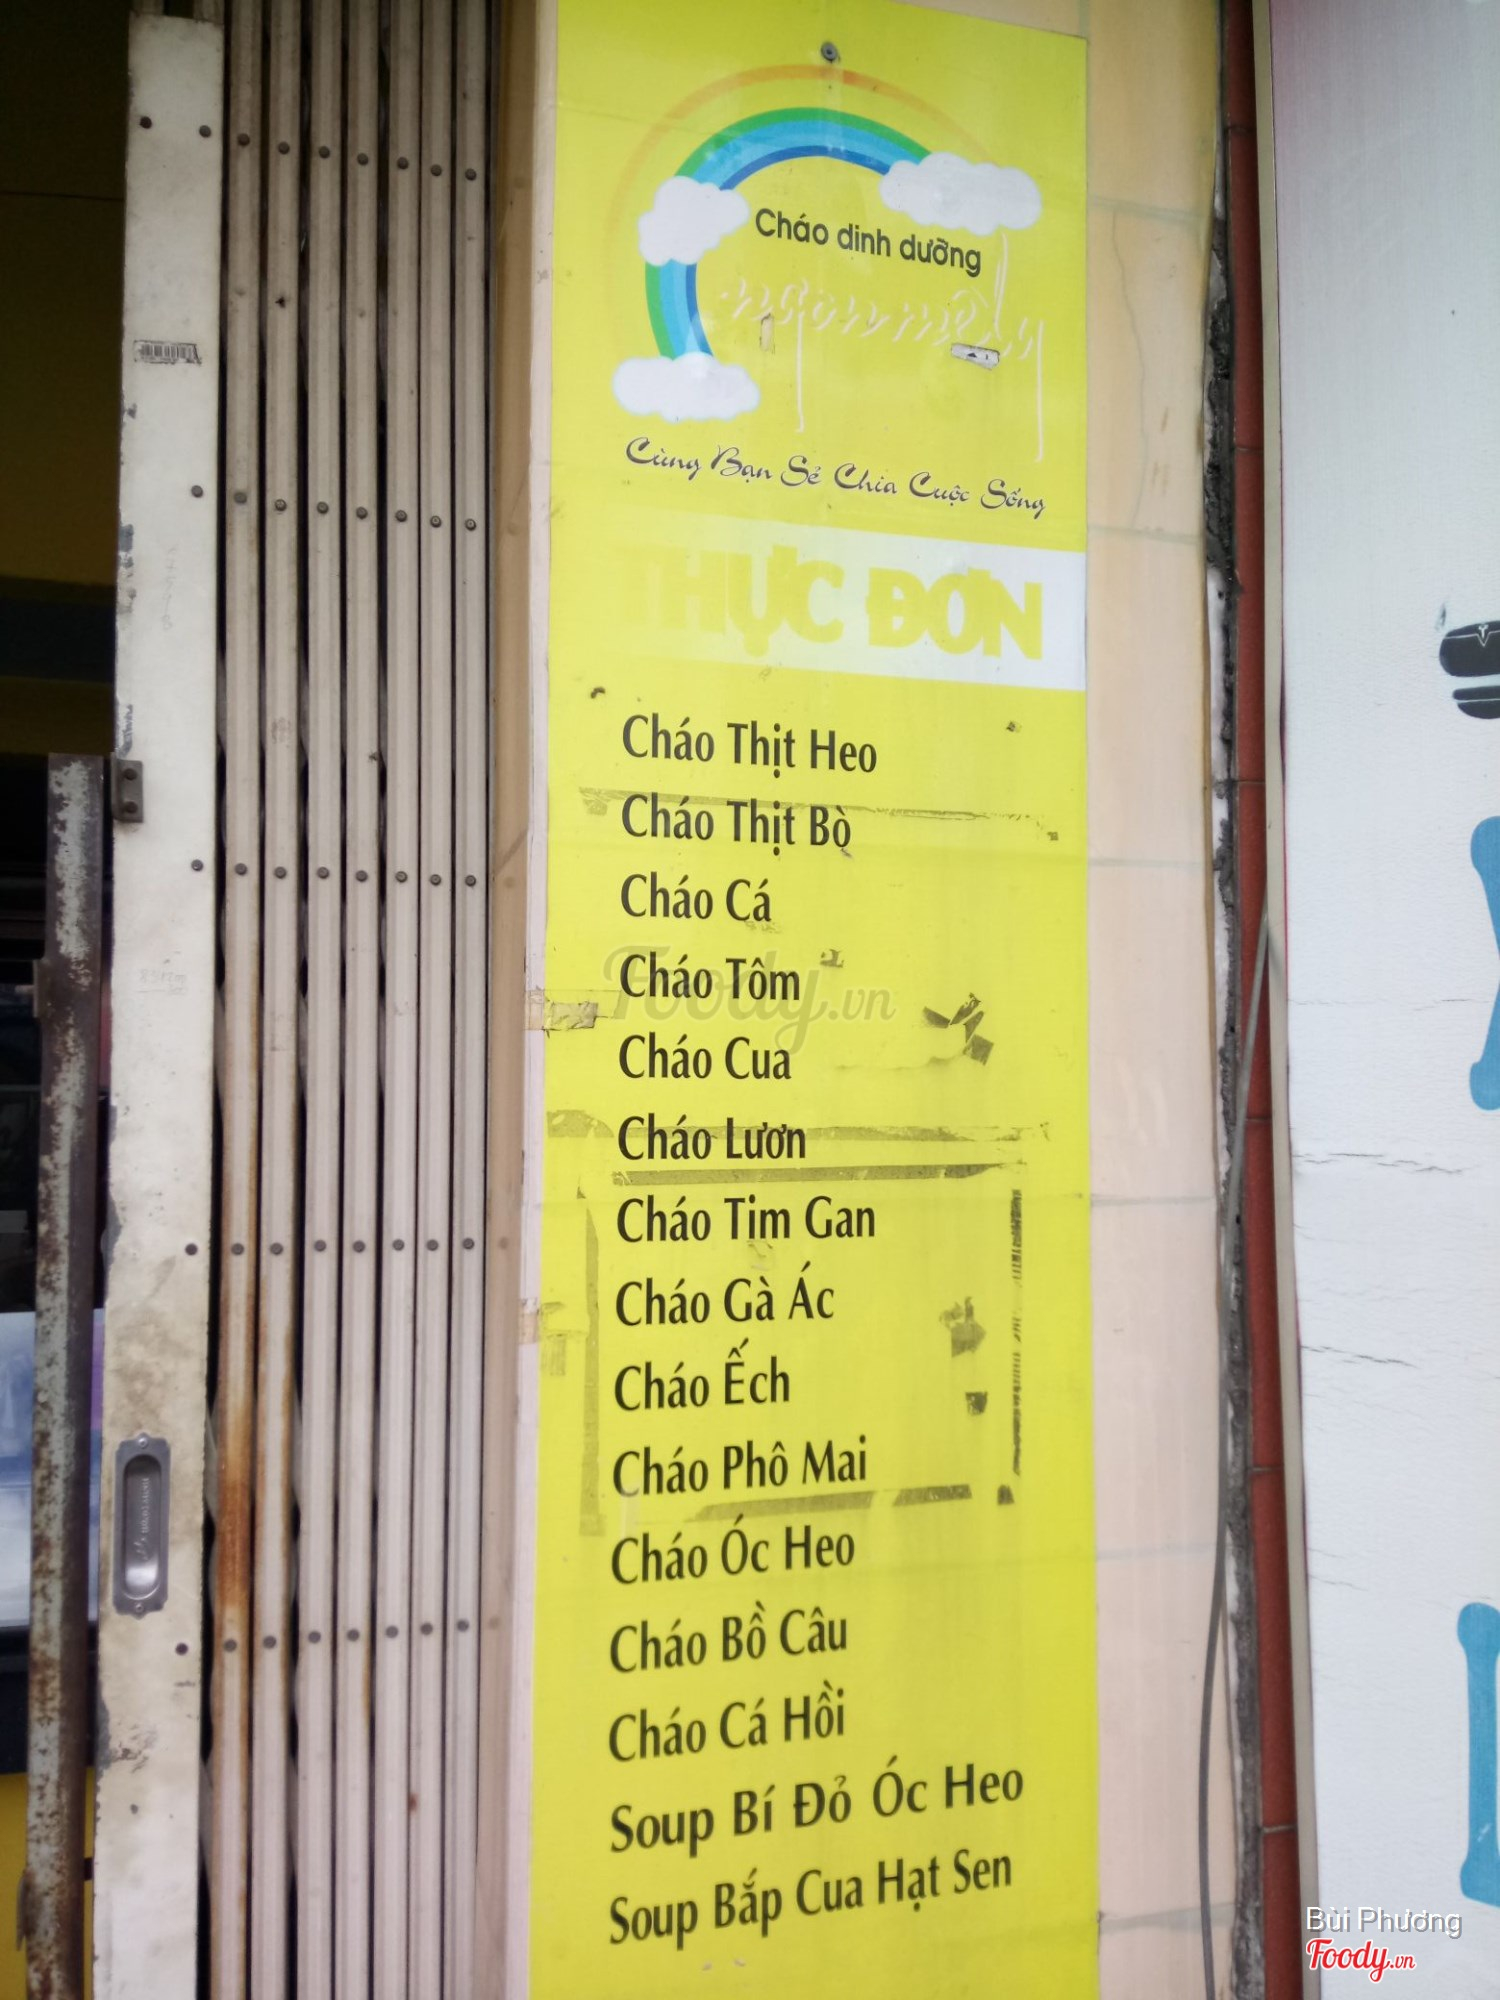 Cháo dinh dưỡng
Cùng Bạn Sẻ Chia Cuộc Sống
THỰC ĐƠN
Cháo Thịt Heo
Cháo Thịt Bò
Cháo Cá
Cháo Tôm
Foody.vn
Cháo Cua
Cháo Lươn
Cháo Tim Gan
Cháo Gà Ác
Cháo Ếch
Cháo Phô Mai
Cháo Óc Heo
Cháo Bồ Câu
Cháo Cá Hồi
Soup Bí Đỏ Óc Heo
Soup Bắp Cua Hạt Sen
Bùi Phương
Foody.vn